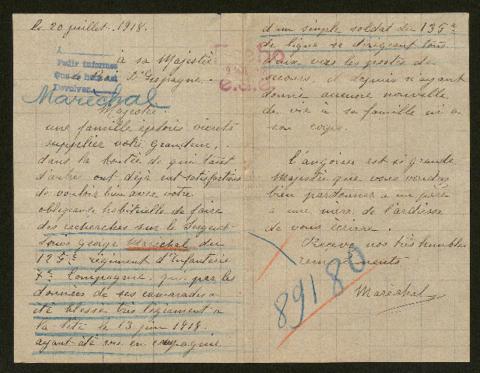 le 20 juillet 1918.
A
Pedir informes
Que se haga así
Devolver
à sa Majesté
d'Espagne.
Maréchal
Majesté.
une famille éplorée vient
supplier votre Grandeur,
dans la bonté de qui tant
d'autre ont déjà eut satisfactions
de vouloir bien avec votre
obligeance habituelle de faire
des recherches sur le Sergent
Louis George Maréchal du
125e régiment d'Infanterie
7e Compagnie. qui par les
données de ses camarades a
été blessé très légèrement à
la tête le 13 juin 1918.
ayant été vu en compagnie
d'un simple soldat du 135e
de ligne se dirigeant tous
deux vers les postes de
secours, il depuis n'ayant
donné aucune nouvelle
de vie à sa famille ni a
son corps.
l'angoisse est si grande
Majesté que vous voudrez
bien pardonner a un père
a une mère de l'ardiesse
de vous écrire.
Recevez nos très humbles
remerciements
Maréchal
89180